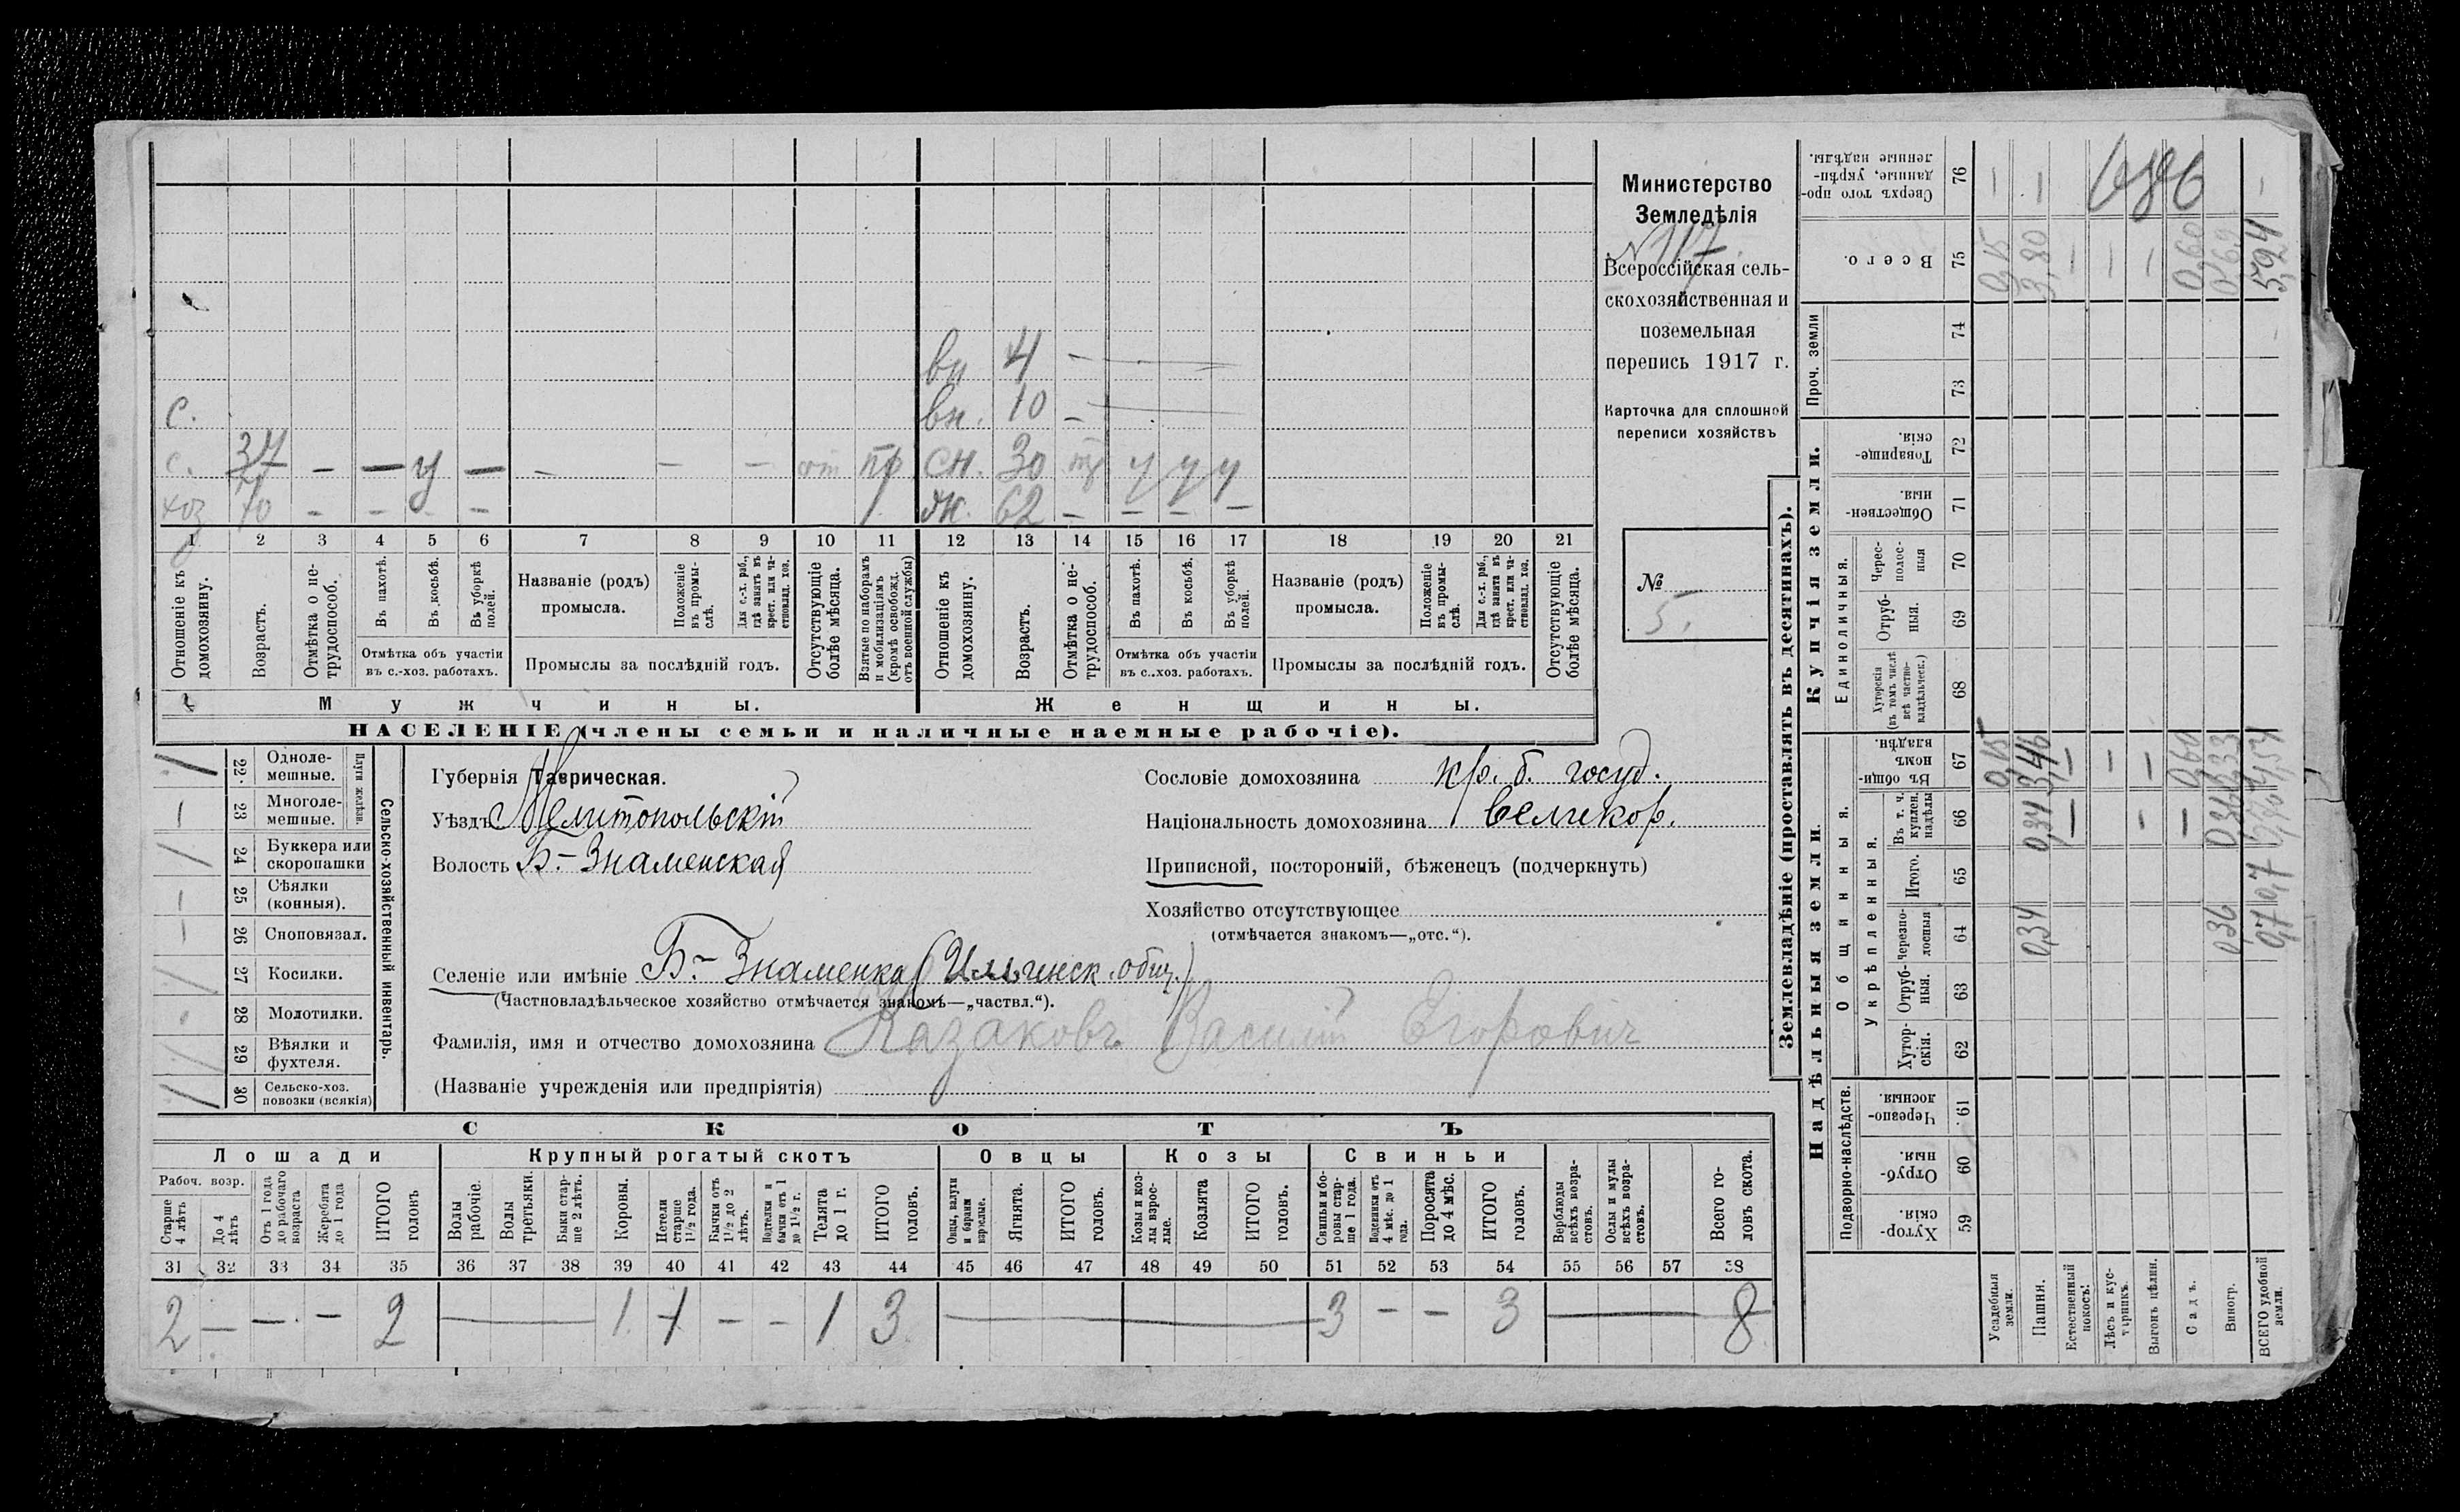 Министерство
Земледѣлія
N 117.
Всероссійская сель-
скохозяйственная и
поземельная
перепись 1917 г.
Карточка для сплошной
переписи хозяйствъ
№
5.
вн 4 –
с. вн. 10 –
с. 37 – – у – – – – от пр сн. 30 у у у
хоз 70 – – – – ж. 62 – – – –
1 2 3 4 5 6 7 8 9 10 11 12 13 14 15 16 17 18 19 20 21
Отношеніе къ домохозяину.
Возрастъ.
Отмѣтка о не-трудоспособ.
Въ пахотѣ.
Въ косьбѣ.
Въ уборкѣ полей.
Отмѣтка объ участіи
въ с.-хоз. работахъ.
Названіе (родъ)
промысла.
Положеніе въ промы-слѣ.
Для с.-х. раб., гдѣ занятъ въ крест. или ча-стновлад. хоз.
Промыслы за послѣдній годъ.
Отсутствующіе болѣе мѣсяца.
Взятые по наборамъ и мобилизаціямъ (кромѣ освобожд. отъ военной службы)
Отношеніе къ домохозяину.
Возрастъ.
Отмѣтка о не-трудоспособ.
Въ пахотѣ.
Въ косьбѣ.
Въ уборкѣ полей.
Отмѣтка объ участіи
въ с.-хоз. работахъ.
Названіе (родъ)
промысла.
Положеніе въ промы-слѣ.
Для с.-х. раб., гдѣ занята въ крест. или ча-стновлад. хоз.
Промыслы за послѣдній годъ.
Отсутствующіе болѣе мѣсяца.
Мужчины. Женщины.
НАСЕЛЕНІЕ (члены семьи и наличные наемные рабочіе).
Сельско-хозяйственный инвентарь.
Плуги желѣзн.
22. Одноле-мешные.
23 Многоле-мешные.
24 Буккера или скоропашки
25 Сѣялки (конныя).
26 Сноповязал.
27 Косилки.
28 Молотилки.
29 Вѣялки и фухтеля.
30 Сельско-хоз. повозки (всякія)
Губернія Таврическая.
Уѣздъ Мелитопольскій
Волость Б.-Знаменская
Сословіе домохозяина кр. б. госуд.
Національность домохозяина великор.
Приписной, посторонній, бѣженецъ (подчеркнуть)
Хозяйство отсутствующее
(отмѣчается знакомъ—„отс.“).
Селеніе или имѣніе Б.-Знаменка (Ильинск. общ.)
(Частновладѣльческое хозяйство отмѣчается знакомъ—„частвл.“).
Фамилія, имя и отчество домохозяина Казаковъ Василій Егорович
(Названіе учрежденія или предпріятія)
СКОТЪ
Лошади Крупный рогатый скотъ Овцы Козы Свиньи
Рабоч. возр.
Старше 4 лѣтъ
До 4 лѣтъ
Отъ 1 года до рабочаго возраста
Жеребята до 1 года
ИТОГО головъ
Волы рабочіе.
Волы третьяки.
Быки стар-ше 2 лѣтъ.
Коровы.
Нетели старше 1½ года.
Бычки отъ 1½ до 2 лѣтъ.
Подтелки и бычки отъ 1 до 1½ г.
Телята до 1 г.
ИТОГО головъ.
Овцы, валухи и бараны взрослые.
Ягнята.
ИТОГО головъ.
Козы и коз-лы взрос-лые.
Козлята
ИТОГО головъ.
Свиньи и бо-ровы стар-ше 1 года.
Подсвинки отъ 4 мѣс. до 1 года.
Поросята до 4 мѣс.
ИТОГО головъ.
Верблюды всѣхъ возра-стовъ.
Ослы и мулы всѣхъ возра-стовъ.
Всего го-ловъ скота.
31 32 33 34 35 36 37 38 39 40 41 42 43 44 45 46 47 48 49 50 51 52 53 54 55 56 57 58
2 – – – 2 – 1 1 – – 1 3 – 3 – – 3 – 8
Землевладѣніе (проставлять въ десятинахъ).
Надѣльныя земли. Купчія земли. Проч. земли
Подворно-наслѣдств. Общинныя. Укрѣпленныя. Единоличныя.
Хутор-скія. 59
Отруб-ныя. 60
Черезпо-лосныя. 61
Хутор-скія. 62
Отруб-ныя. 63
Черезпо-лосныя 64
Итого. 65
Въ т. ч. куплен. надѣлы 66
Въ общин-номъ владѣн. 67
Хуторскія (въ томъ числѣ всѣ частно-владѣльческ.) 68
Отруб-ныя. 69
Черес-полос-ныя 70
Обществен-ныя. 71
Товарище-скія. 72
73
74
Всего. 75
Сверхъ того про-данные, укрѣп-ленные надѣлы. 76
Усадебныя земли. 0,15 0,15
Пашня. 0,34 0,34 3,46 3,80
Естественный покосъ.
Лѣсъ и кус-тарникъ.
Выгонъ цѣлин.
Садъ. 0,60 0,60
Виногр. 0,36 0,36 0,33 0,69
ВСЕГО удобной земли. 0,7 0,7 4,54 5,24